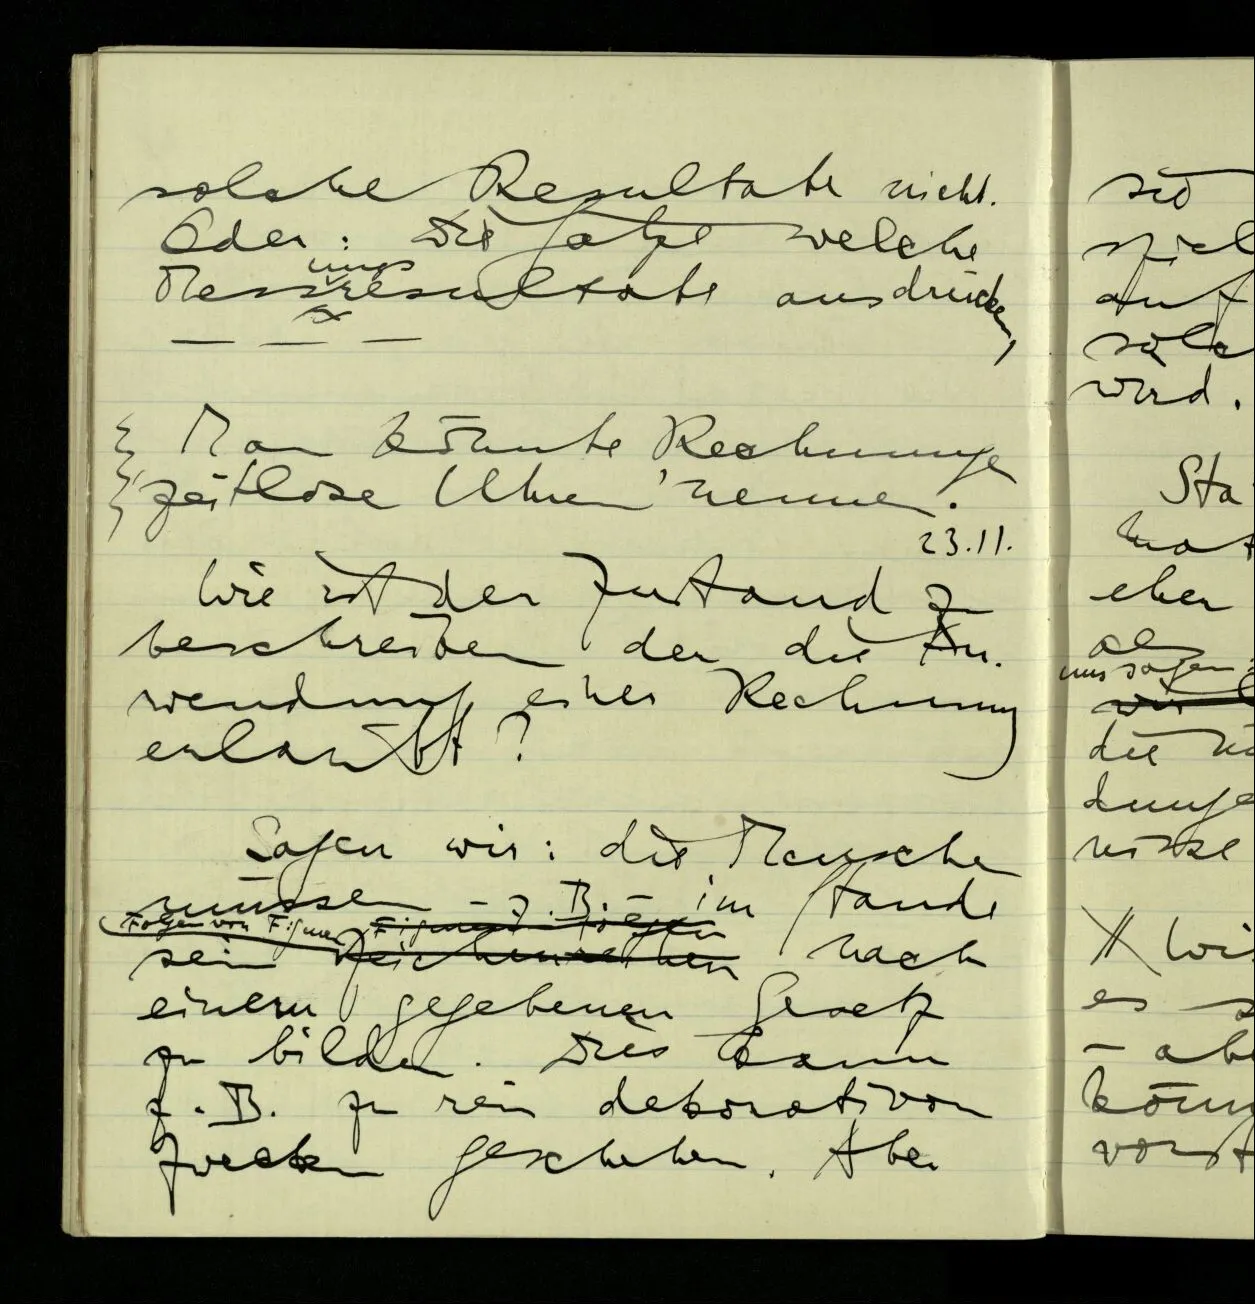 solche Resultate nicht.
Oder: Die Sätze welche
ungs
Messresultate ausdrücken,
— — —
Man könnte Rechnungen
zeitlose Uhren nennen.
23.11.
Wie ist der Zustand zu
beschreiben der die An-
wendung einer Rechnung
erlaubt?
Sagen wir: die Menschen
müssen – z.B. – im Stande
Folgen von Figuren Figuren-Folgen
sein Zeichenreihen nach
einem gegebenen Gesetz
zu bilden. Dies kann
z.B. zu rein dekorativen
Zwecken geschehen. Aber
sid
spiel
auf
solc
wird.
Sta
hat
eher
als
uns sagen
wir
die
dunge
nisse
Wi
es s
– abe
könn
vorst